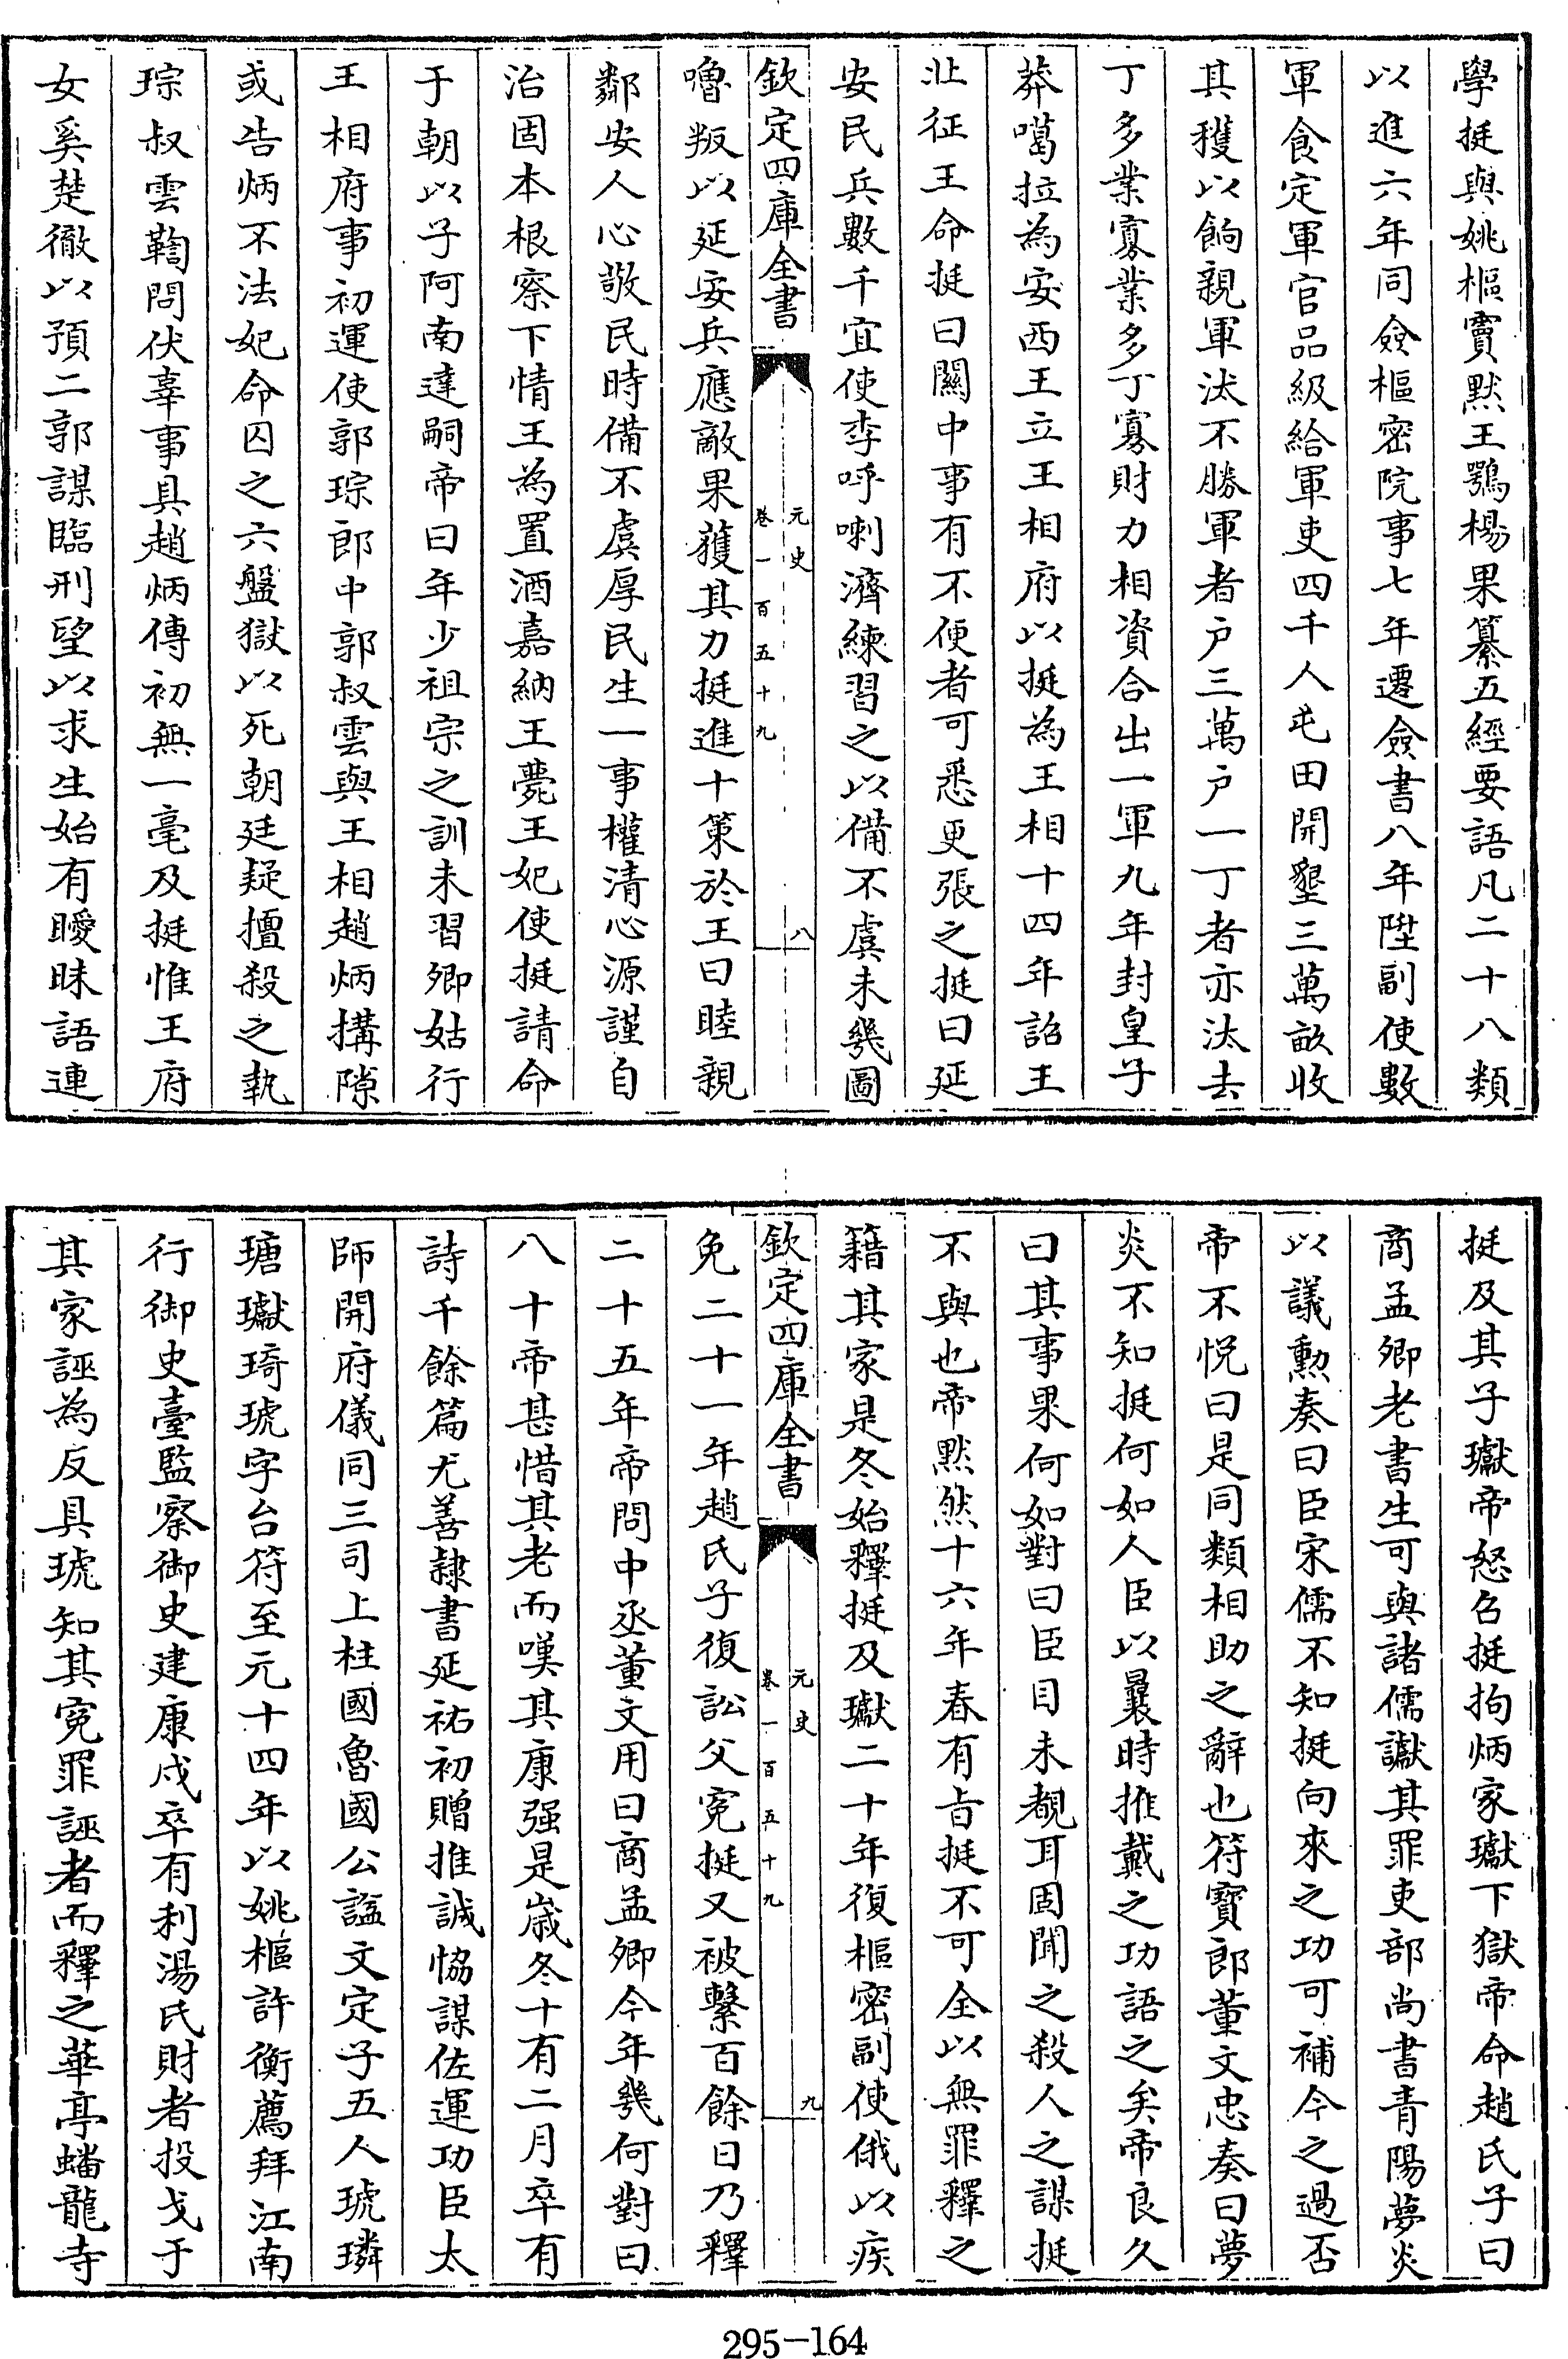 學挺與姚樞竇黙王鶚楊果纂五經要語凡二十八類
以進六年同僉樞密院事七年遷僉書八年陞副使數
軍食定軍官品級給軍吏四千人屯田開墾三萬畝收
其穫以餉親軍汰不勝軍者户三萬户一丁者亦汰去
丁多業寡業多丁寡財力相資合出一軍九年封皇子
莽噶拉為安西王立王相府以挺為王相十四年詔王
北征王命挺曰關中事有不便者可悉更張之挺曰延
安民兵數千宜使李呼喇濟練習之以備不虞未幾圖
欽定四庫全書 元史 卷一百五十九 八
嚕叛以延安兵應敵果獲其力挺進十策於王曰睦親
鄰安人心敬民時備不虞厚民生一事權清心源謹自
治固本根察下情王為置酒嘉納王薨王妃使挺請命
于朝以子阿南達嗣帝曰年少祖宗之訓未習卿姑行
王相府事初運使郭琮郎中郭叔雲與王相趙炳搆隙
或告炳不法妃命囚之六盤獄以死朝廷疑擅殺之執
琮叔雲鞫問伏辜事具趙炳傳初無一毫及挺惟王府
女奚楚徹以預二郭謀臨刑望以求生始有曖昧語連
挺及其子瓛帝怒召挺拘炳家瓛下獄帝命趙氏子曰
商孟卿老書生可與諸儒讞其罪吏部尚書青陽夢炎
以議勲奏曰臣宋儒不知挺向來之功可補今之過否
帝不悦曰是同類相助之辭也符寶郎董文忠奏曰夢
炎不知挺何如人臣以曩時推戴之功語之矣帝良久
曰其事果何如對曰臣目未覩耳固聞之殺人之謀挺
不與也帝黙然十六年春有旨挺不可全以無罪釋之
籍其家是冬始釋挺及瓛二十年復樞密副使俄以疾
欽定四庫全書 元史 卷一百五十九 九
免二十一年趙氏子復訟父寃挺又被繫百餘日乃釋
二十五年帝問中丞董文用曰商孟卿今年幾何對曰
八十帝甚惜其老而嘆其康强是歲冬十有二月卒有
詩千餘篇尤善隸書延祐初贈推誠恊謀佐運功臣太
師開府儀同三司上柱國魯國公諡文定子五人琥璘
瑭瓛琦琥字台符至元十四年以姚樞許衡薦拜江南
行御史臺監察御史建康戍卒有利湯氏財者投戈于
其家誣為反具琥知其寃罪誣者而釋之華亭蟠龍寺
295-164